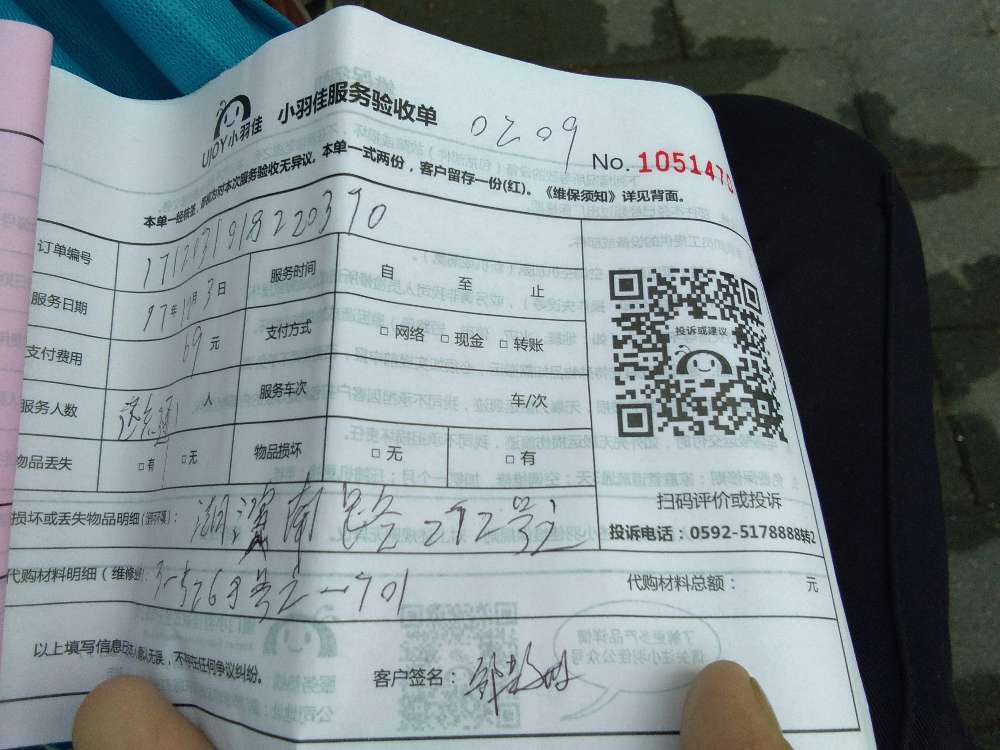 UJOY小羽佳 小羽佳服务验收单 0209
No. 105147
本单一经核签，即视为对本次服务验收无异议, 本单一式两份，客户留存一份(红)。《维保须知》详见背面。
订单编号 17121319182203 90
服务日期 97年 月3日 服务时间 自 至 止
支付费用 69元 支付方式 □ 网络 □ 现金 □ 转账
服务人数 人 服务车次 车/次
物品丢失 □有 □无 物品损坏 □ 无 □ 有
投诉或建议
扫码评价或投诉
投诉电话：0592-5178888转2
损坏或丢失物品明细 湖滨南路292号
代购材料明细（维修 代购材料总额： 元
以上填写信息 确认无误，不存在任何争议纠纷。
客户签名：